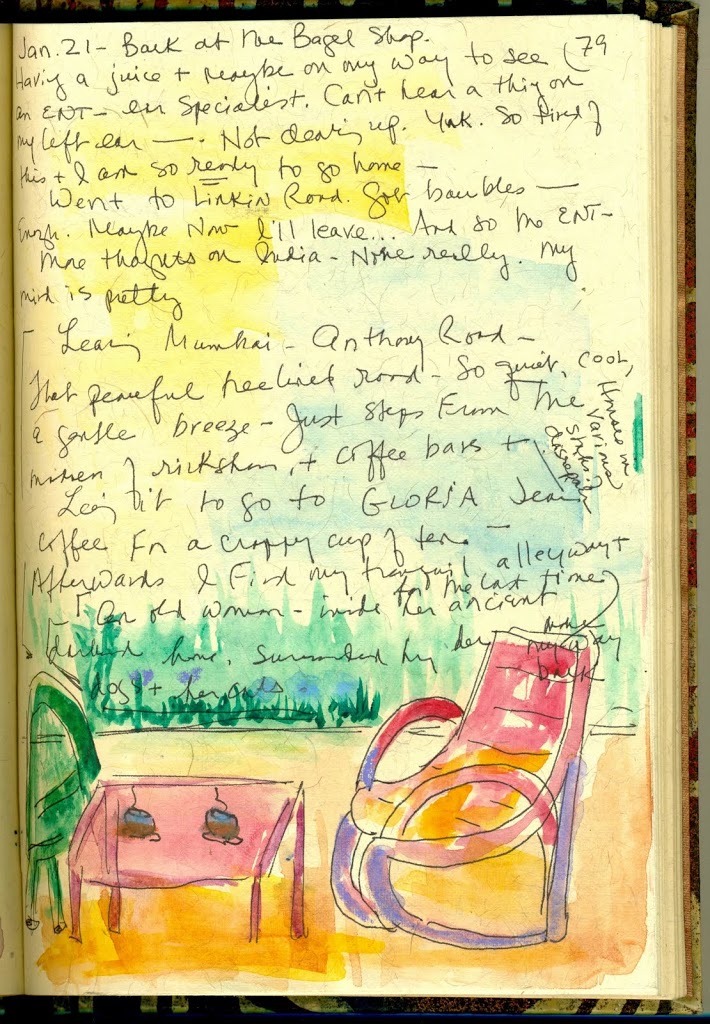 Jan. 21 - Back at the Bagel Shop.
79
Having a juice + maybe on my way to see
an ENT - ear specialist. Can't hear a thing on
my left ear —. Not clearing up. Yuk. So tired of
this + I am so ready to go home —
Went to Linkin Road. Got baubles —
Enough. Maybe Now I'll leave... And so the ENT-
More thoughts on India - None really. My
mind is pretty
Leaving Mumbai - Anthony Road -
that peaceful treelined road - So quiet, cool,
a gentle breeze - Just steps From the
of rickshaws, + coffee bars +
Houses in
various
states of
disrepair
Leaving it to go to GLORIA Jean
coffee For a crappy cup of tea. —
Afterwards I Find my tranquil alleyway +
for the last time
An old woman - inside her ancient
darkened home, surrounded by her
make
my way
back
dogs + her cats